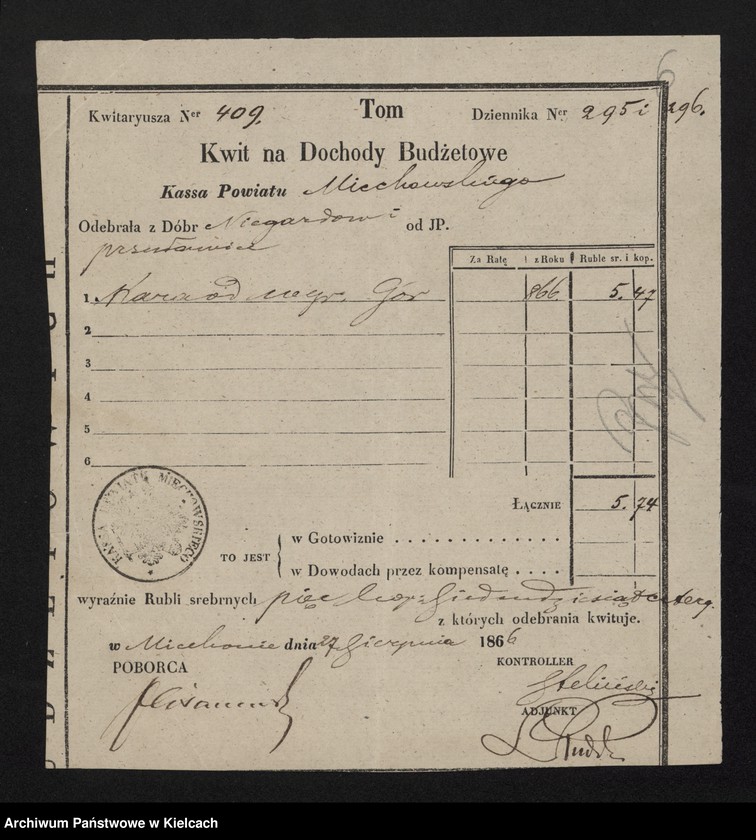 6
Kwitaryusza Ner 409. Tom Dziennika Ner 295 i 296.
Kwit na Dochody Budżetowe
Kassa Powiatu Miechowskiego
Odebrała z Dóbr Niegardow i od JP.
przesławice
Za Ratę z Roku Ruble sr. i kop.
1 Kara od Gór 866 5. 47
2
3
4
5
6
KASSA POWIATU MIECHOWSKIEGO
Łącznie 5. 74
TO JEST
w Gotowiznie . . . . . . . . . . . .
w Dowodach przez kompensatę . . . .
wyraźnie Rubli srebrnych pięć kop. siedmdziesiąt cztery.
z których odebrania kwituje.
w Miechowie dnia 27 Sierpnia 1866
POBORCA KONTROLLER
ADJUNKT
Archiwum Państwowe w Kielcach